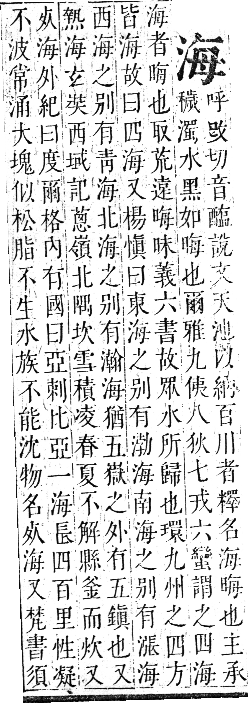 海
呼改切音醢說文天池以納百川者釋名海晦也主承
穢濁水黑如晦也爾雅九侇八狄七戎六蠻謂之四海
海者晦也取荒遠晦昧義六書故眾水所歸也環九州之四方
皆海故曰四海又楊愼曰東海之別有渤海南海之別有漲海
西海之別有青海北海之別有瀚海猶五嶽之外有五鎭也又
熱海玄奘西域記蔥嶺北隅坎雪積凌春夏不解縣釜而炊又
死海外紀曰度爾格內有國曰亞剌比亞一海長四百里性凝
不波常涌大塊似松脂不生水族不能沈物名死海又梵書須